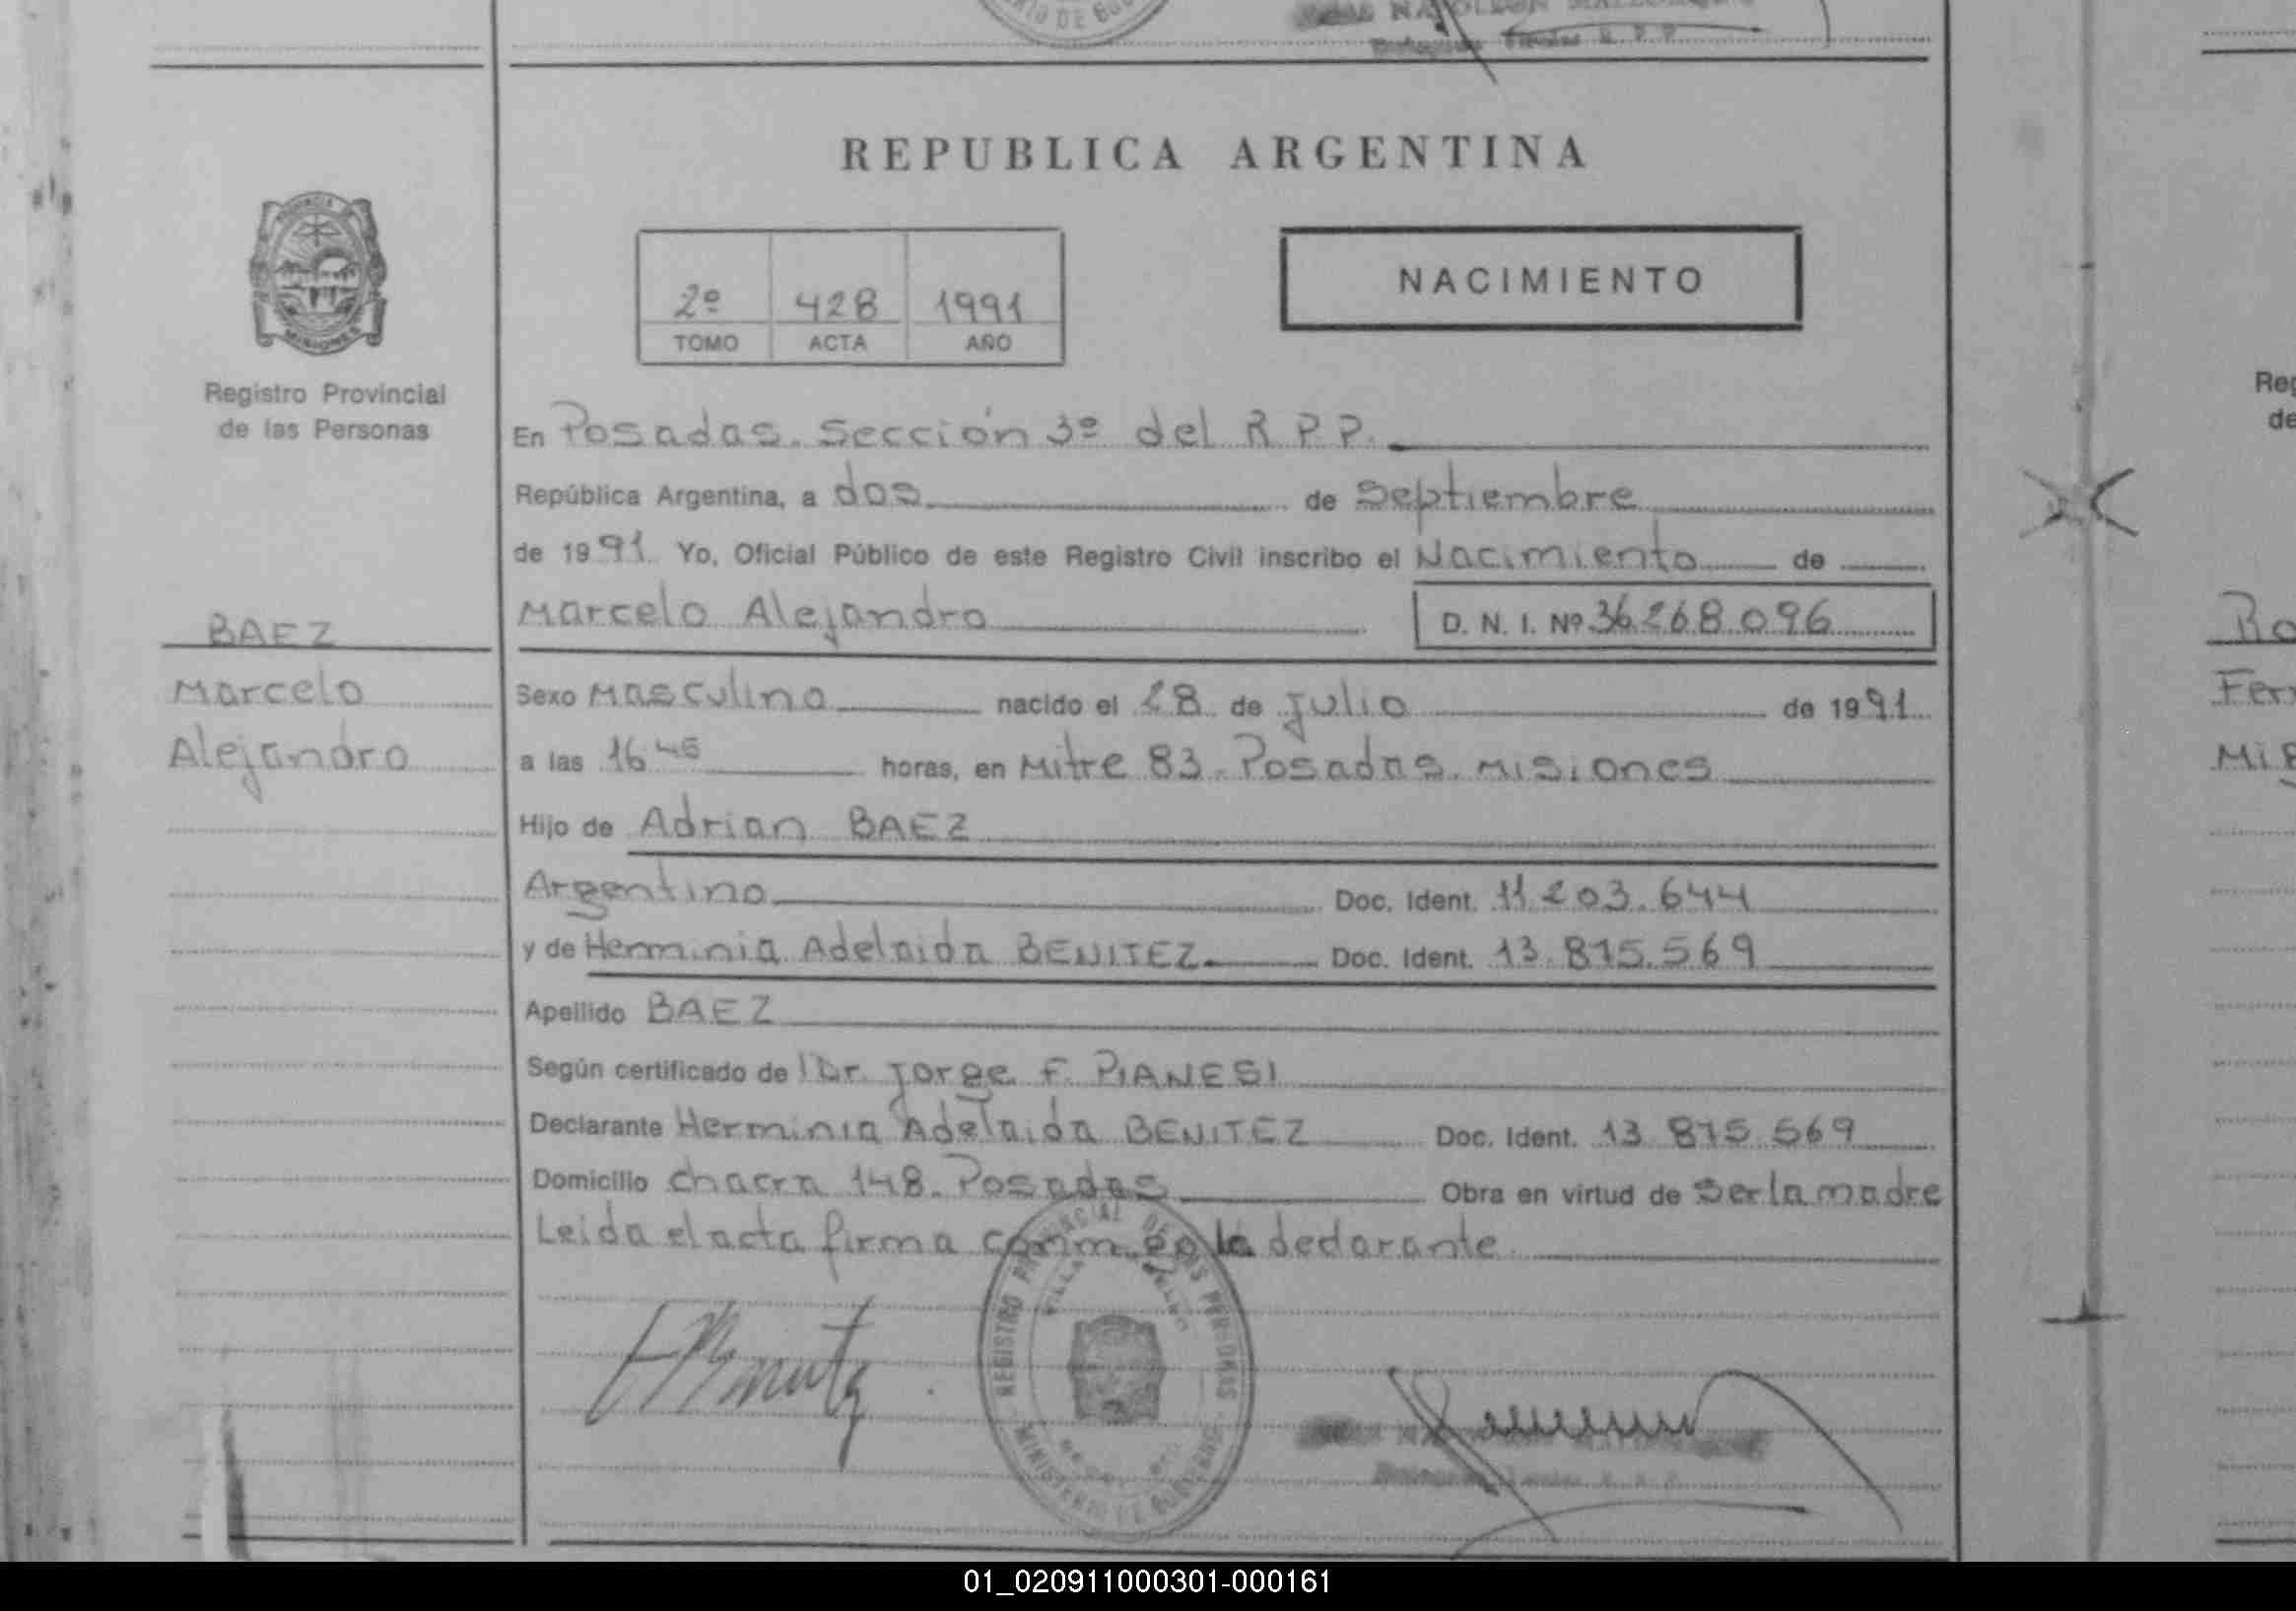 REPUBLICA ARGENTINA
2º 428 1991
TOMO ACTA AÑO
NACIMIENTO
PROVINCIA
MISIONES
Registro Provincial
de las Personas
BAEZ
Marcelo
Alejandro
En Posadas. Sección 3º del R P P.
República Argentina, a dos de Septiembre
de 1991 Yo, Oficial Público de este Registro Civil inscribo el Nacimiento de
Marcelo Alejandro D. N. I. Nº 36.268.096
Sexo Masculino nacido el 28 de Julio de 1991
a las 16 45 horas, en Mitre 83 - Posadas. Misiones
Hijo de Adrian BAEZ
Argentino Doc. Ident. 11.203.644
y de Herminia Adelaida BENITEZ Doc. Ident. 13.875.569
Apellido BAEZ
Según certificado de l Dr. Jorge F. PIANESI
Declarante Herminia Adelaida BENITEZ Doc. Ident. 13 875.569
Domicilio Chacra 148. Posadas Obra en virtud de Ser la madre
Leida el acta firma conmigo la declarante
REGISTRO PROVINCIAL DE LAS PERSONAS
MINISTERIO DE GOBIERNO
Reg
de
Fer
01_020911000301-000161